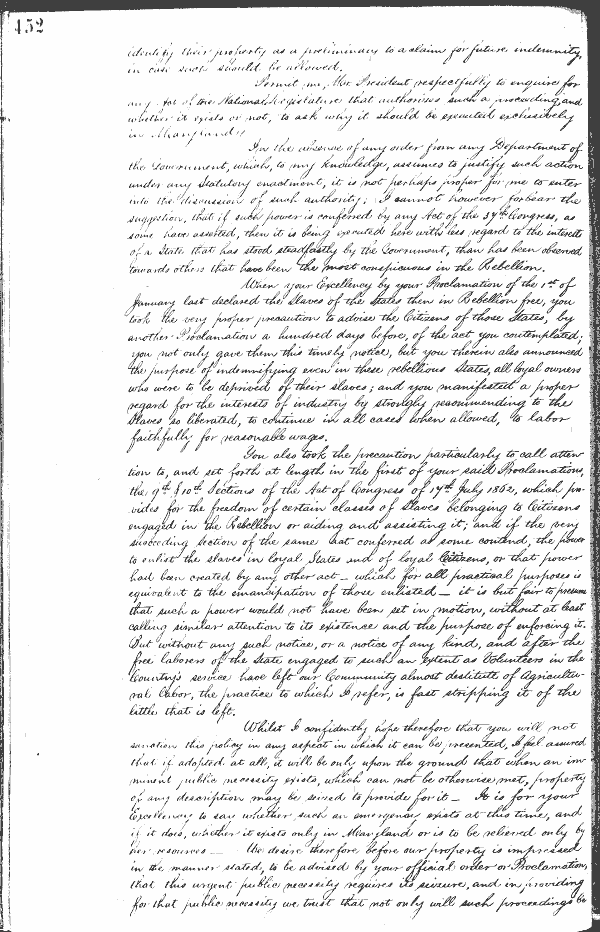 452
identify their property as a preliminary to a claim for future indemnity,
in case such should be allowed.
Permit me, Mr. President, respectfully to enquire for
any Act of the National Legislature that authorises such a proceeding, and
whether it exists or not, to ask why it should be executed exclusively
in Maryland?
In the absence of any order from any Department of
the Government, which, to my knowledge, assumes to justify such action
under any Statutory enactment, it is not perhaps proper for me to enter
into the discussion of such authority; I cannot however forbear the
suggestion, that if such power is conferred by any Act of the 37th Congress, as
some have asserted, then it is being executed here with less regard to the interests
of a State that has stood steadfastly by the Government, than has been observed
towards others that have been the most conspicuous in the Rebellion.
When your Excellency by your Proclamation of the 1st of
January last declared the Slaves of the States then in Rebellion free, you
took the very proper precaution to advise the Citizens of those States, by
another Proclamation a hundred days before, of the act you contemplated;
you not only gave them this timely notice, but you therein also announced
the purpose of indemnifying even in these rebellious States, all loyal owners
who were to be deprived of their slaves; and you manifested a proper
regard for the interests of industry by strongly recommending to the
Slaves so liberated, to continue in all cases when allowed, to labor
faithfully for reasonable wages.
You also took the precaution particularly to call atten
tion to, and set forth at length in the first of your said Proclamations,
the 9th & 10th Sections of the Act of Congress of 17th July 1862, which pro-
vides for the freedom of certain classes of Slaves belonging to Citizens
engaged in the Rebellion or aiding and assisting it; and if the very
succeeding section of the same act conferred as some contend, the power
to enlist the slaves in loyal States and of loyal Citizens, or that power
had been created by any other act – which for all practical purposes is
equivalent to the emancipation of those enlisted – it is but fair to presume
that such a power would not have been set in motion, without at least
calling similar attention to its existence and the purpose of enforcing it.
But without any such notice, or a notice of any kind, and after the
free laborers of the State engaged to such an extent as Volunteers in the
Country's service have left our Community almost destitute of Agricultu-
ral Labor, the practice to which I refer, is fast stripping it of the
little that is left.
Whilst I confidently hope therefore that you will not
sanction this policy in any aspect in which it can be presented, I feel assured
that if adopted at all, it will be only upon the ground that when an im
minent public necessity exists, which can not be otherwise met, property
of any description may be seized to provide for it – It is for your
Excellency to say whether such an emergency exists at this time, and
if it does, whether it exists only in Maryland or is to be relieved only by
her resources – We desire therefore before our property is impressed
in the manner stated, to be advised by your official order or Proclamation,
that this urgent public necessity requires its seizure, and in providing
for that public necessity we trust that not only will such proceedings be